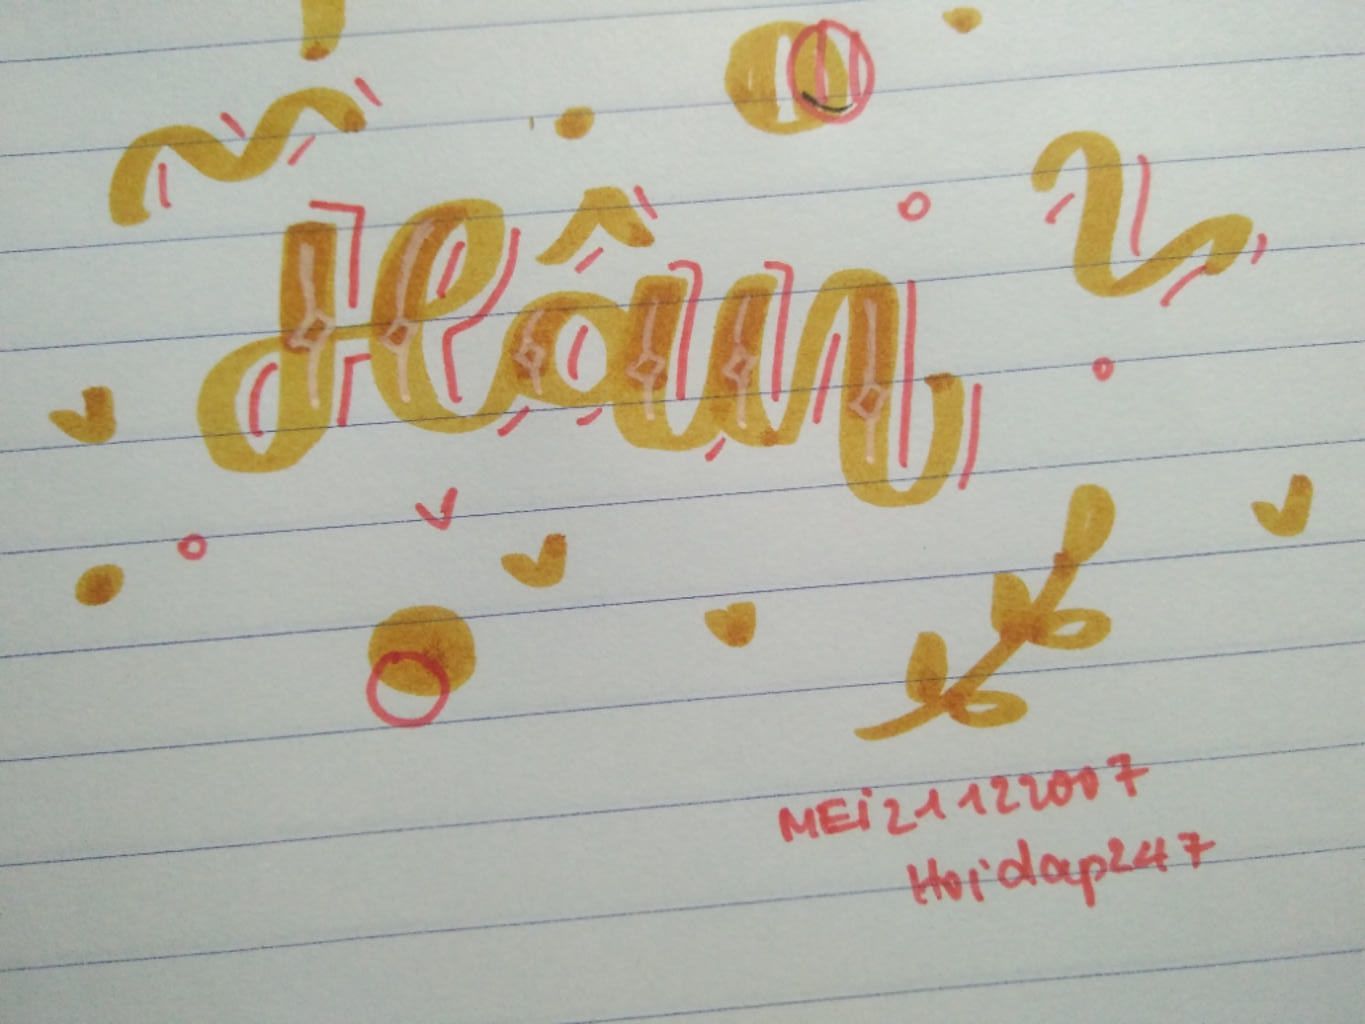 Hân
MEi21122007
Hoidap247